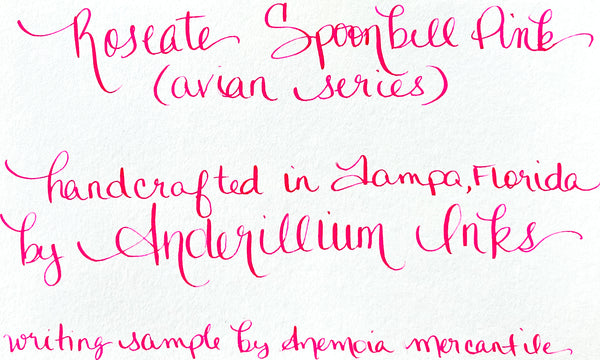 Roseate Spoonbill Pink
(avian series)
handcrafted in Tampa, Florida
by Anderillium Inks
writing sample by Anemoia mercantile